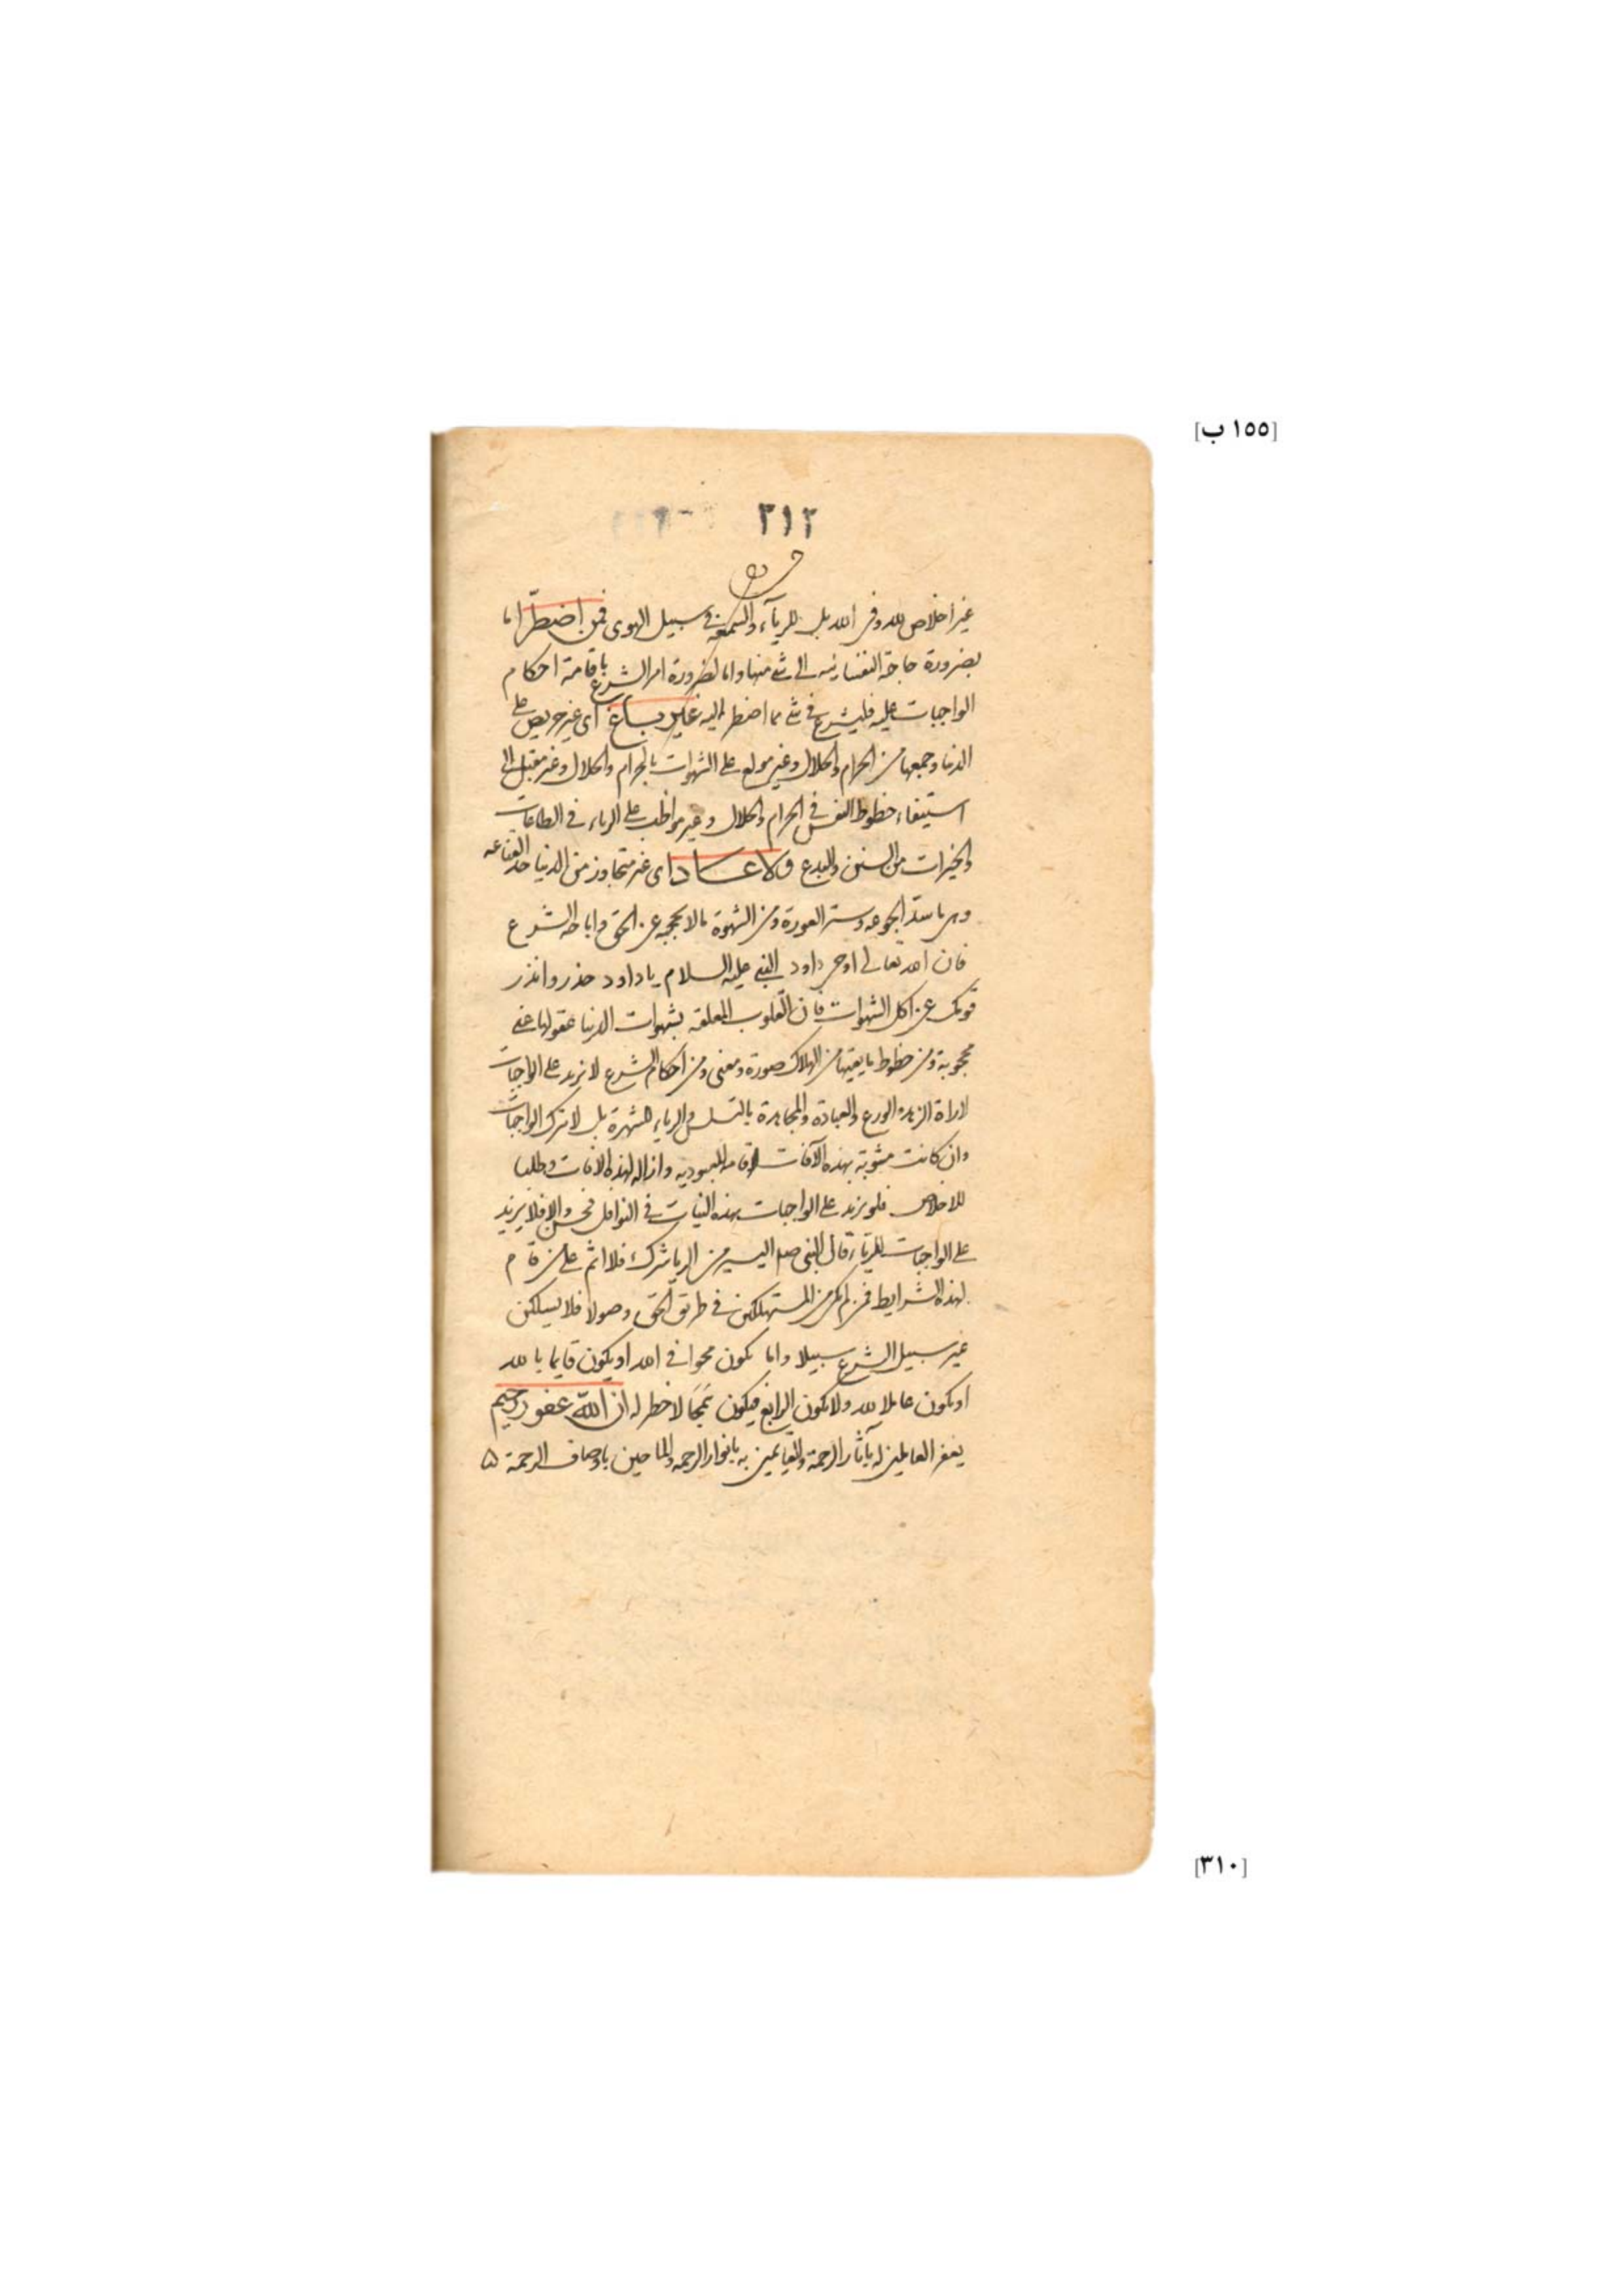 [١٥٥ ب]
٣١٢
غير اخلاص لله وفى الله بل للرياء والسمعة فى سبيل الهوى فمن اضطرّ اما
بضرورة حاجة النفسانيه الى شئ منها واما لضرورة امر الشرع باقامة احكام
الواجبات عليه فليشرع فى شئ مما اضطر اليه غير باغ اى غير حريص على
الدنيا وجمعها من الحرام والحلال وغير مولع على الشهوات بالحرام والحلال وغير مقبل الى
استيفاء حظوظ النفس فى الحرام والحلال وغير مواظب على الرياء فى الطاعات
والخيرات من السنن والبدع ولا عاد اى غير متجاوز من الدنيا حد القناعه
وهى ما سد الجوعه وستر العورة ومن الشهوة ما لا يحجبه عن الحق واباحه الشرع
فان الله تعالى اوحى داود النبى عليه السلام يا داود حذر وانذر
قومك عن اكل الشهوات فان القلوب المعلقه بشهوات الدنيا عقولها عنى
محجوبة ومن حظوظ ما يقيها من الهلاك صورة ومعنى ومن احكام الشرع لا نزيد على الواجبات
لاراة الزهد والورع والعبادة والمجاهدة بالتسلس والرياء للشهرة بل لا نترك الواجبات
وان كانت مشوبة بهذه الآفات اقامه للعبوديه وازاله لهذه الافات وطلبا
للاخلاص فلو يزيد على الواجبات بهذه النيات فى النوافل فحسن والا فلا يزيد
على الواجبات للرياء قال النبى صلم اليسير من الريا شرك فلا اثم على من قام
لهذه الشرايط فمن لم يكن من المستهلكين فى طريق الحق وصولا فلا يسلكن
غير سبيل الشرع سبيلا واما يكون محوا فى الله او يكون قايما بالله
او يكون عاملا لله ولا يكون الرابع فيكون همجا لا خطر له ان الله غفور رحيم
يغفر العاملين له بآثار الرحمة والقايمين به بانوار الرحمه والماحين باوصاف الرحمة ۵
[٣١٠]